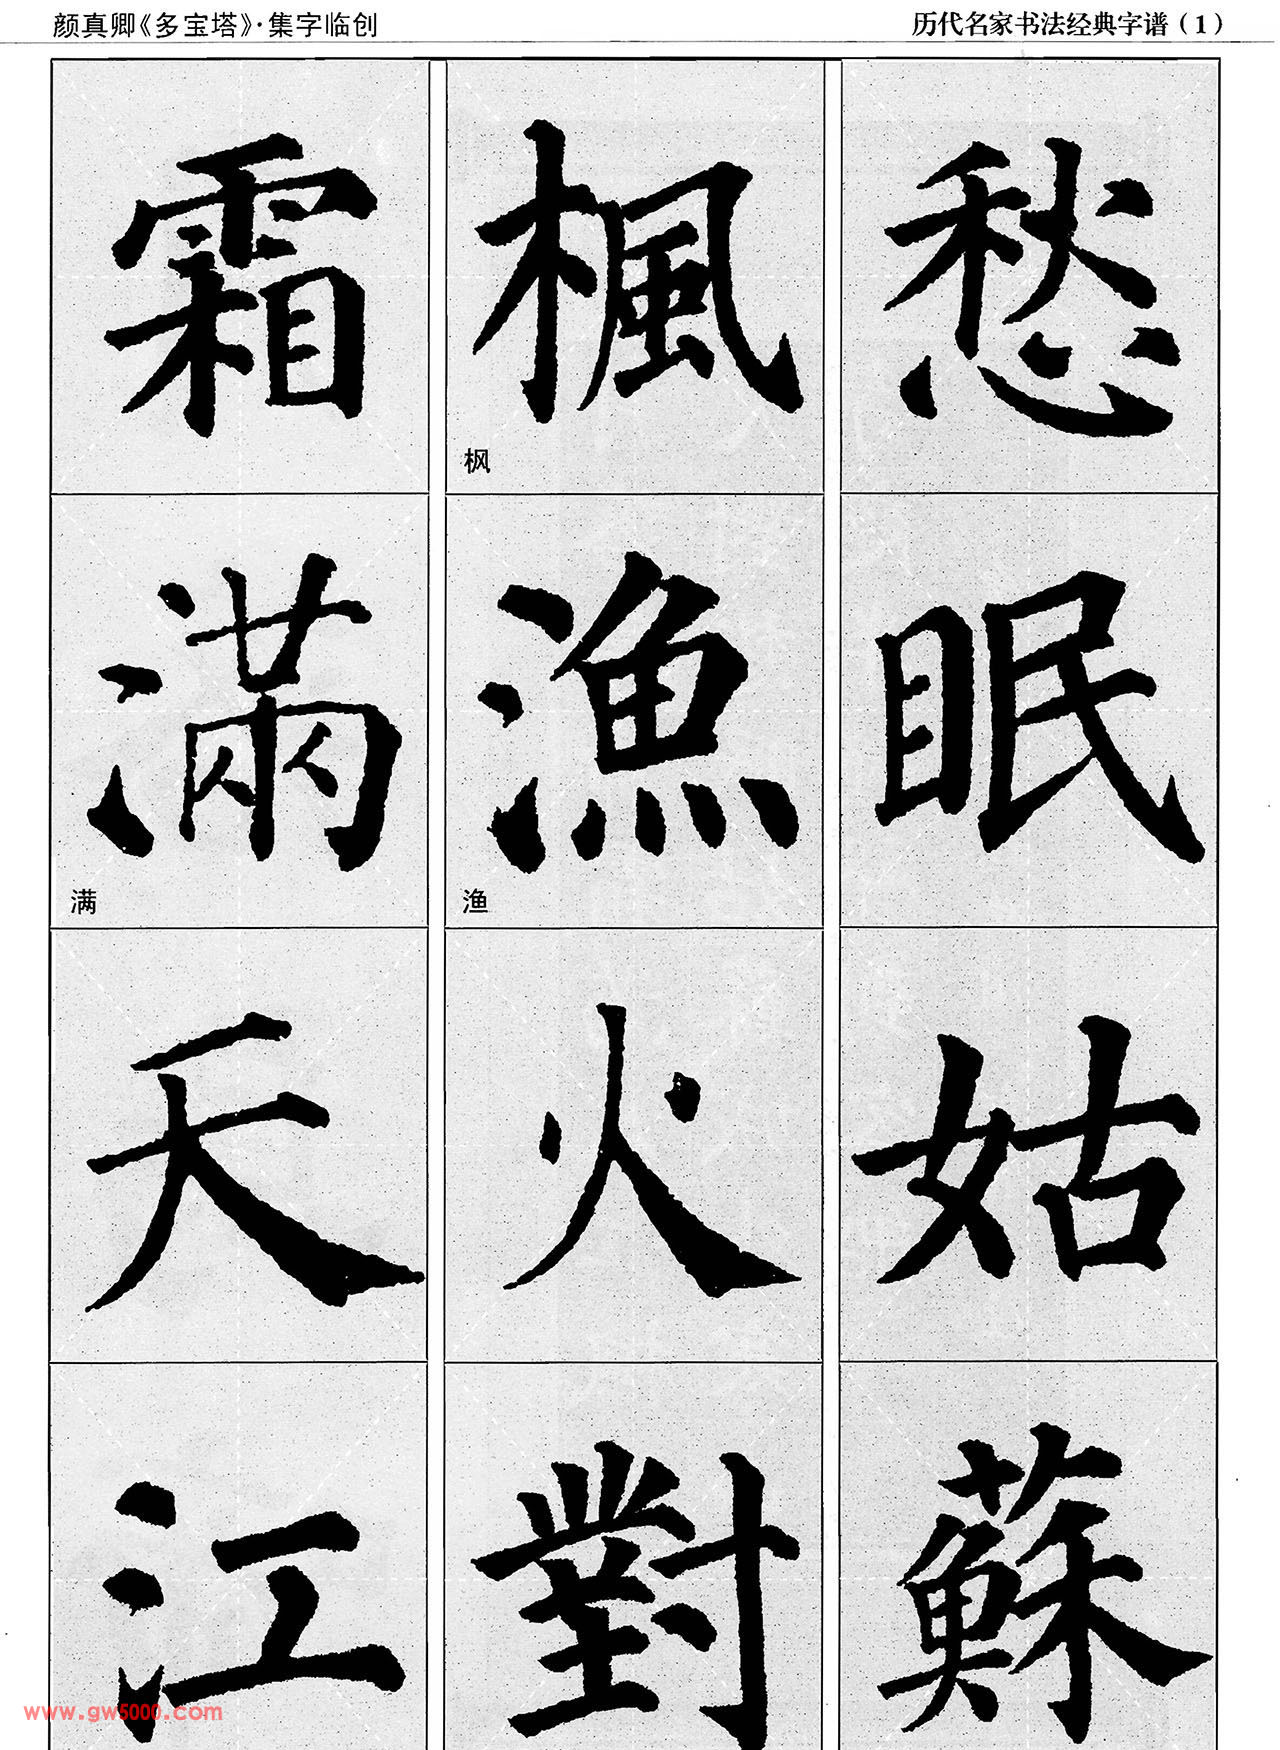 颜真卿《多宝塔》·集字临创
历代名家书法经典字谱（1）
愁眠姑蘇
楓漁火對
枫
渔
霜滿天江
满
www.gw5000.com